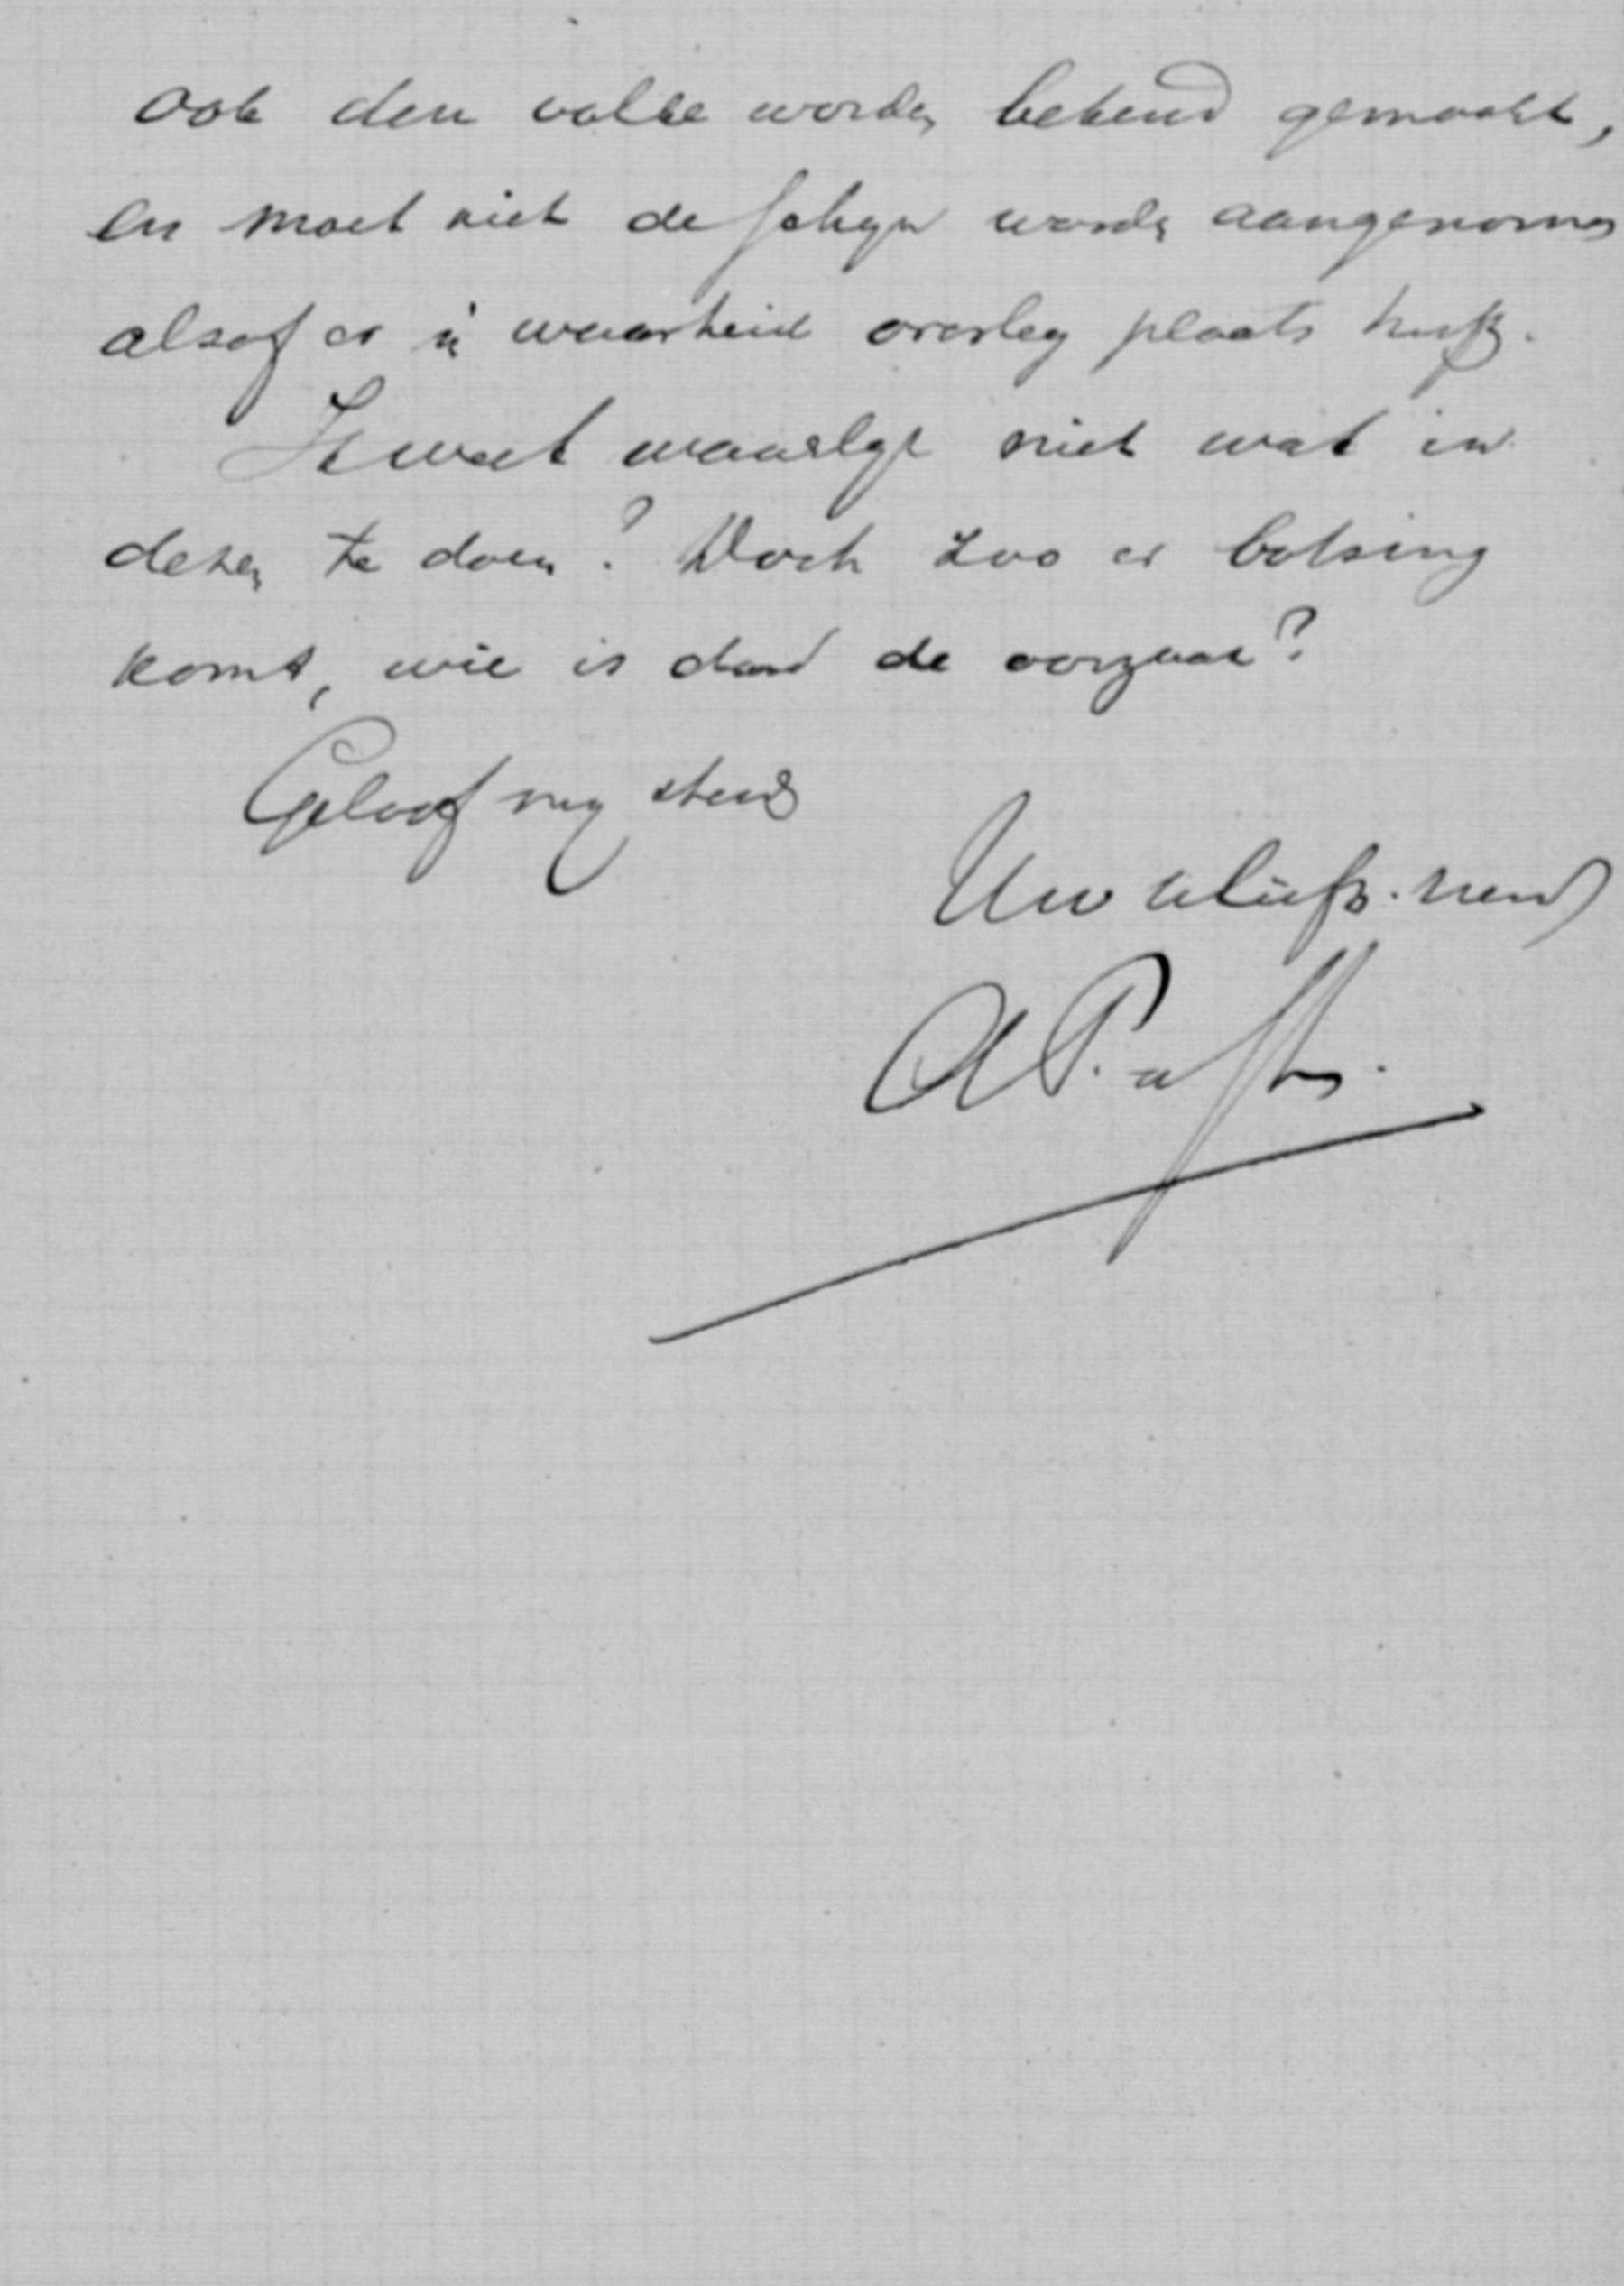 ook den volke worden bekend gemaakt,
en moet niet de schijn worden aangenomen
alsof er in waarheid overleg plaats heeft.
Ik weet waarlijk niet wat in
dezen te doen? Doch zoo er botsing
komt, wie is dan de oorzaak?
Geloof mij steeds
Uw liefh. vriend